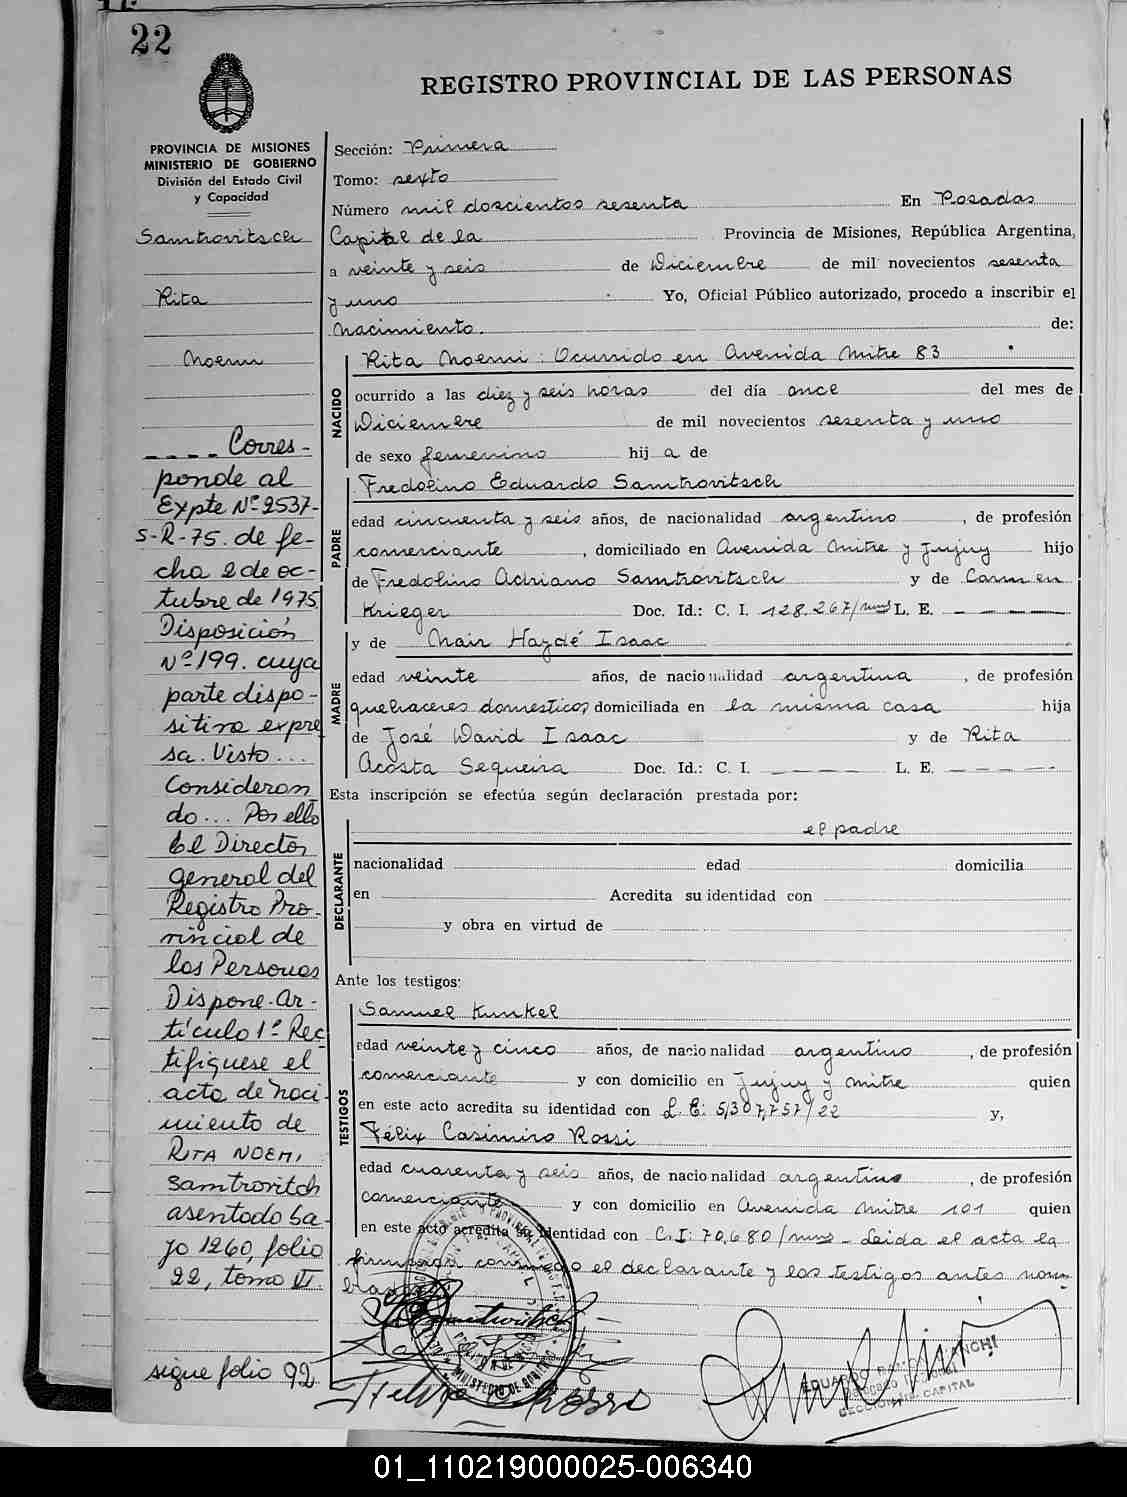 22
REGISTRO PROVINCIAL DE LAS PERSONAS
PROVINCIA DE MISIONES
MINISTERIO DE GOBIERNO
División del Estado Civil
y Capacidad
Samtrovitsch
Rita
Noemi
Corres-
ponde al
Expte Nº 2537-
S-R-75. de fe-
cha 2 de oc-
tubre de 1975
Disposición
Nº 199. cuya
parte dispo-
sitiva expre
sa. Visto...
Consideran
do... Por ello
El Director
general del
Registro Pro-
vincial de
las Personas
Dispone. Ar-
tículo 1º Rec
tifíquese el
acta de naci
miento de
RITA NOEMI
Samtrovitch
asentado ba-
jo 1260, folio
22, tomo VI.
sigue folio 92
Sección: Primera
Tomo: sexto
Número mil doscientos sesenta En Posadas
Capital de la Provincia de Misiones, República Argentina,
a veinte y seis de Diciembre de mil novecientos sesenta
y uno Yo, Oficial Público autorizado, procedo a inscribir el
Nacimiento. de:
NACIDO
Rita Noemi : Ocurrido en Avenida Mitre 83
ocurrido a las diez y seis horas del día once del mes de
Diciembre de mil novecientos sesenta y uno
de sexo femenino hij a de
PADRE
Fredolino Eduardo Samtrovitsch
edad cincuenta y seis años, de nacionalidad argentino, de profesión
comerciante, domiciliado en Avenida Mitre y Jujuy hijo
de Fredolino Adriano Samtrovitsch y de Carmen
Krieger Doc. Id.: C. I. 128.267/mns L. E. — — — — —
MADRE
y de Nair Haydé Isaac
edad veinte años, de nacionalidad argentina, de profesión
quehaceres domesticos domiciliada en la misma casa hija
de José David Isaac y de Rita
Acosta Sequeira Doc. Id.: C. I. — — — — L. E. — — — — -
Esta inscripción se efectúa según declaración prestada por:
DECLARANTE
el padre
nacionalidad edad domicilia
en Acredita su identidad con
y obra en virtud de
Ante los testigos:
TESTIGOS
Samuel Kunkel
edad veinte y cinco años, de nacionalidad argentino, de profesión
comerciante y con domicilio en Jujuy y Mitre quien
en este acto acredita su identidad con L. E: 5,307,757/22 y,
Félix Casimiro Rossi
edad cuarenta y seis años, de nacionalidad argentino, de profesión
comerciante y con domicilio en Avenida Mitre 101 quien
en este acto acredita su identidad con C. I: 70,680/mns – Leida el acta la
firman conmigo el declarante y los testigos antes nom-
brados
MINISTERIO DE GOBIERNO
Rossi
EDUARDO RAMON
SECCION 1a. CAPITAL
01_110219000025-006340